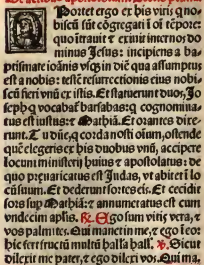 Oportet ergo ex his viris q̄ no
biscū sūt cōgregati ī oī tēpore
quo ītrauit ⁊ exiuit inter nos do
minus Jesus: incipiens a ba
ptismate ioānis vsq̄ in diē qua assumptus
est a nobis: testē resurrectionis eius nobi
scū fieri vnū ex istis. Et statuerūt duos, Jo
seph q̄ vocabat̄ barsabas: q cognomina
tus est iustus: ⁊ Mathiā. Et orantes dixe
runt. Tu dn̄e, q corda nosti oīum, ostende
quē elegeris ex his duobus vnū, accipere
locum ministerij huius ⁊ apostolatus: de
quo p̄uaricatus est Judas, vt abiret ī lo
cū suum. Et dederunt sortes eis. Et cecidit
sors sup Mathiā: ⁊ annumeratus est cum
vndecim aplis. ℟. Ego sum vitis vera, ⁊
vos palmites. Qui manet in me, ⁊ ego ī eo
hic fert fructū multū halla hall. ℣. Sicut
dilexit me pater, ⁊ ego dilexi vos. Qui ma.